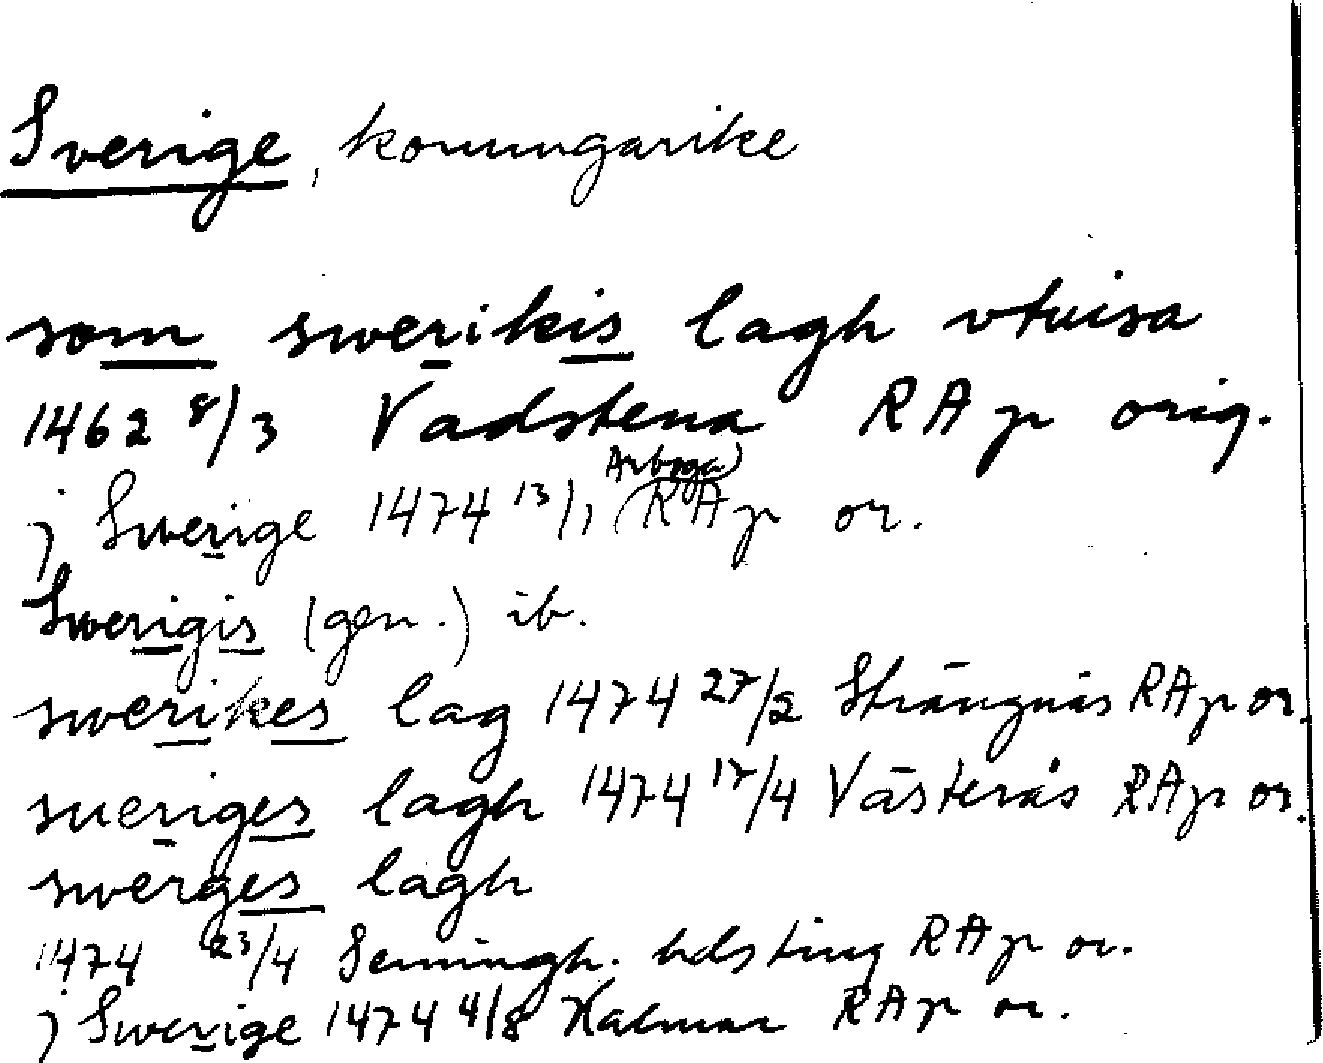 Sverige, konungarike
som swerikis lagh vtuisa
1462 8/3 Vadstena RAp orig.
j Swerige 1474 13/1 (Arboga) RAp or.
Swerigis (gen.) ib.
swerikes lag 1474 27/2 Strängnäs RAp or.
sueriges lagh 1474 17/4 Västerås RAp or.
swerges lagh
1474 23/4 Semingh. hdsting RAp or.
j Swerige 1474 4/8 Kalmar RAp or.